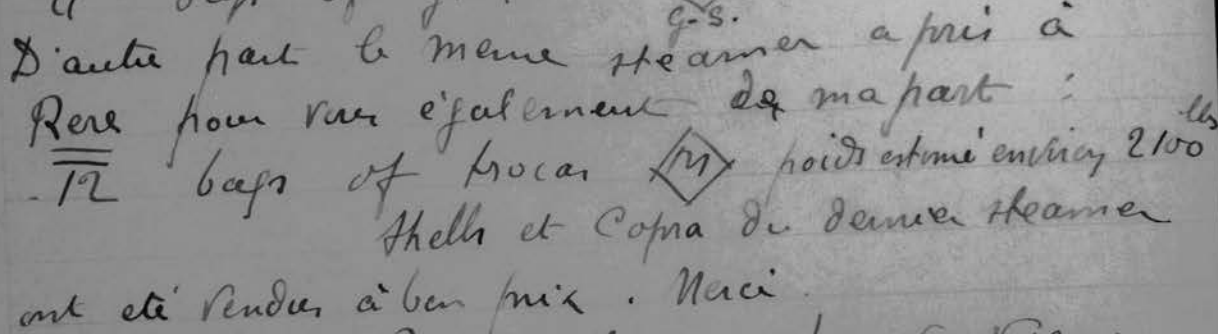 G.S.
D'autre part le meme steamer a pris à
Rere pour vous également de ma part :
12 bags of trocas M poids estimé environ 2100 lbs
Shells et Copra du dernier steamer
ont été vendus à bon prix . Merci.